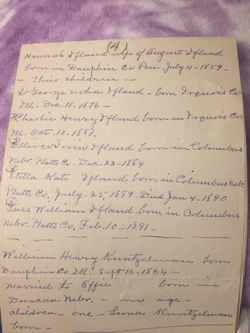 (4)
Hannah Ifland wife of August Ifland
born in Dauphin Co Pen July 4-1859-
- Their children -
George Ifland - born Iroquois Co
Ill. Dec. 11-1876-
Charlie Henry Ifland born in Iroquois Co
Ill. Oct. 13-1881.
Oliver Irvin Ifland born in Columbus
Nebr. Platte Co. Dec. 22-1884
Stella Kate Ifland born in Columbus Nebr
Platte Co. July 25, 1889 Died Jan 4-1890
William Ifland, born in Columbus
Nebr. Platte Co, Feb. 10-1891-
William Henry Kuntzelman born
Dauphin Co Ill. Sept 16, 1864-
married to Effie born in
Duncan Nebr. - no age -
children - one - Lerna Kuntzelman
born -